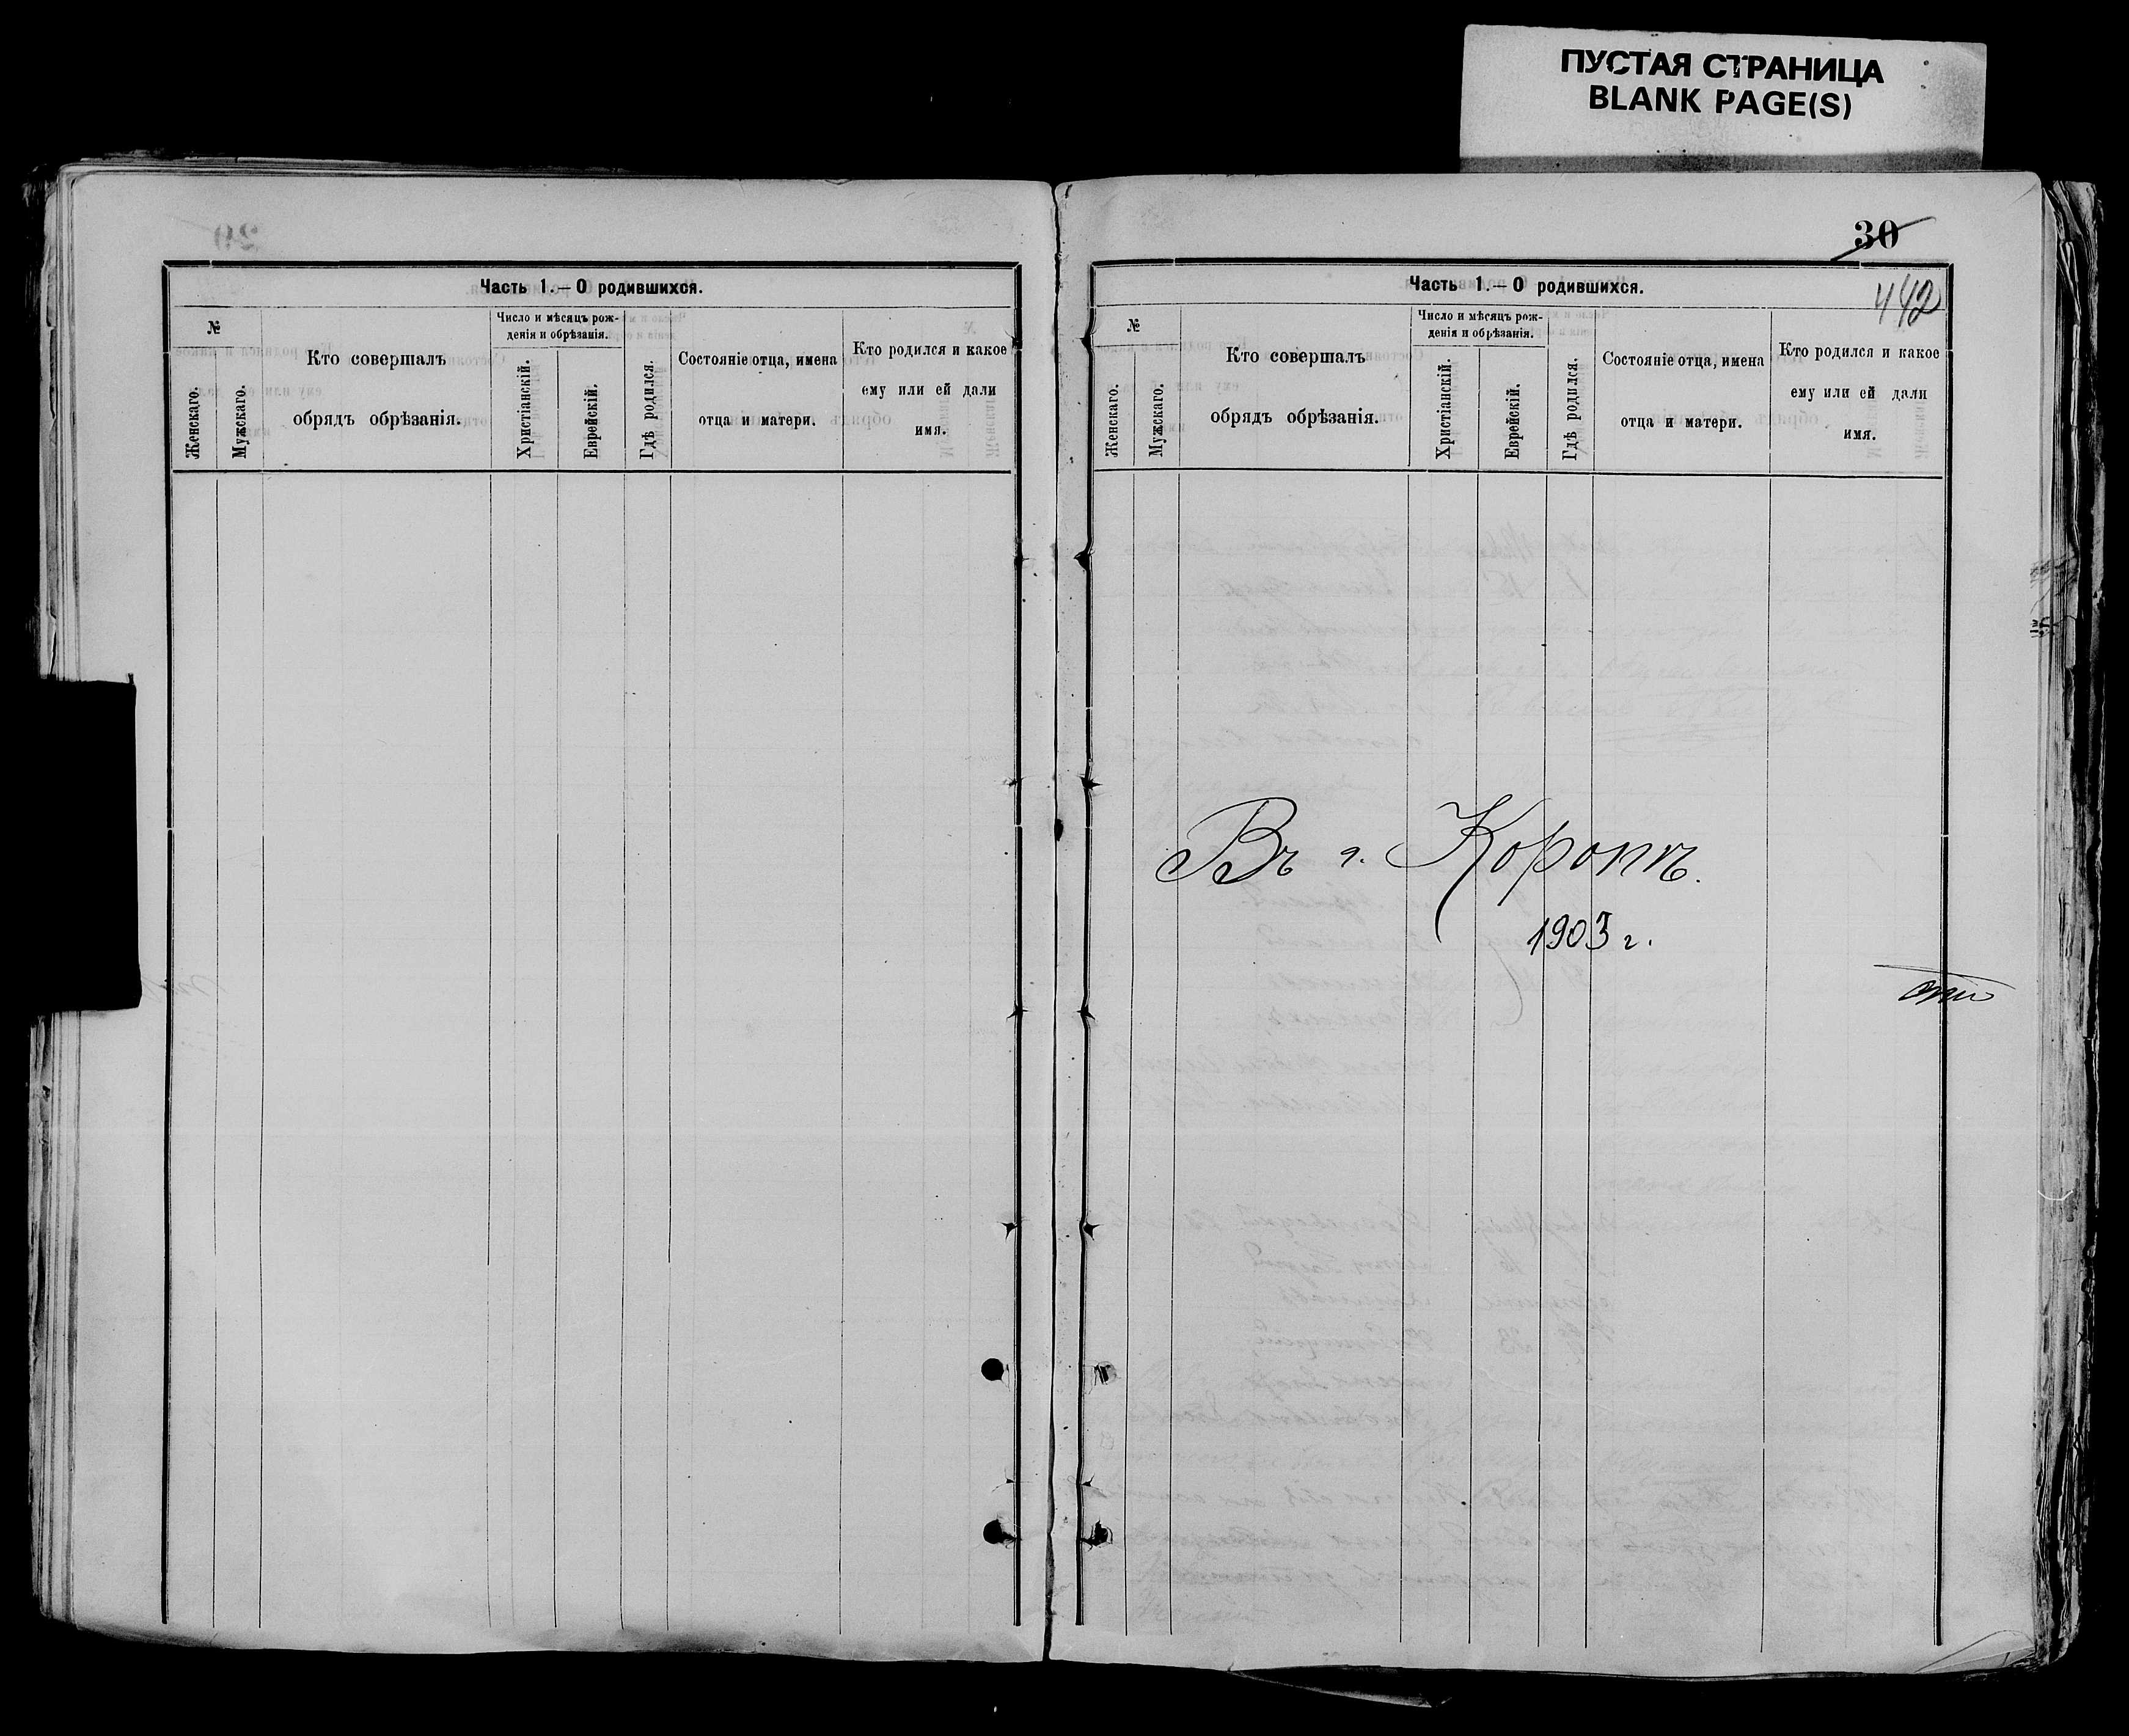 ПУСТАЯ СТРАНИЦА
BLANK PAGE(S)
Часть 1.—О родившихся.
№
Женскаго.
Мужскаго.
Кто совершалъ
обрядъ обрѣзанія.
Число и мѣсяцъ рож-
денія и обрѣзанія.
Христіанскій.
Еврейскій.
Гдѣ родился.
Состояніе отца, имена
отца и матери.
Кто родился и какое
ему или ей дали
имя.
30
442
Часть 1.—О родившихся.
№
Женскаго.
Мужскаго.
Кто совершалъ
обрядъ обрѣзанія.
Число и мѣсяцъ рож-
денія и обрѣзанія.
Христіанскій.
Еврейскій.
Гдѣ родился.
Состояніе отца, имена
отца и матери.
Кто родился и какое
ему или ей дали
имя.
Въ г. Коропѣ.
1903 г.